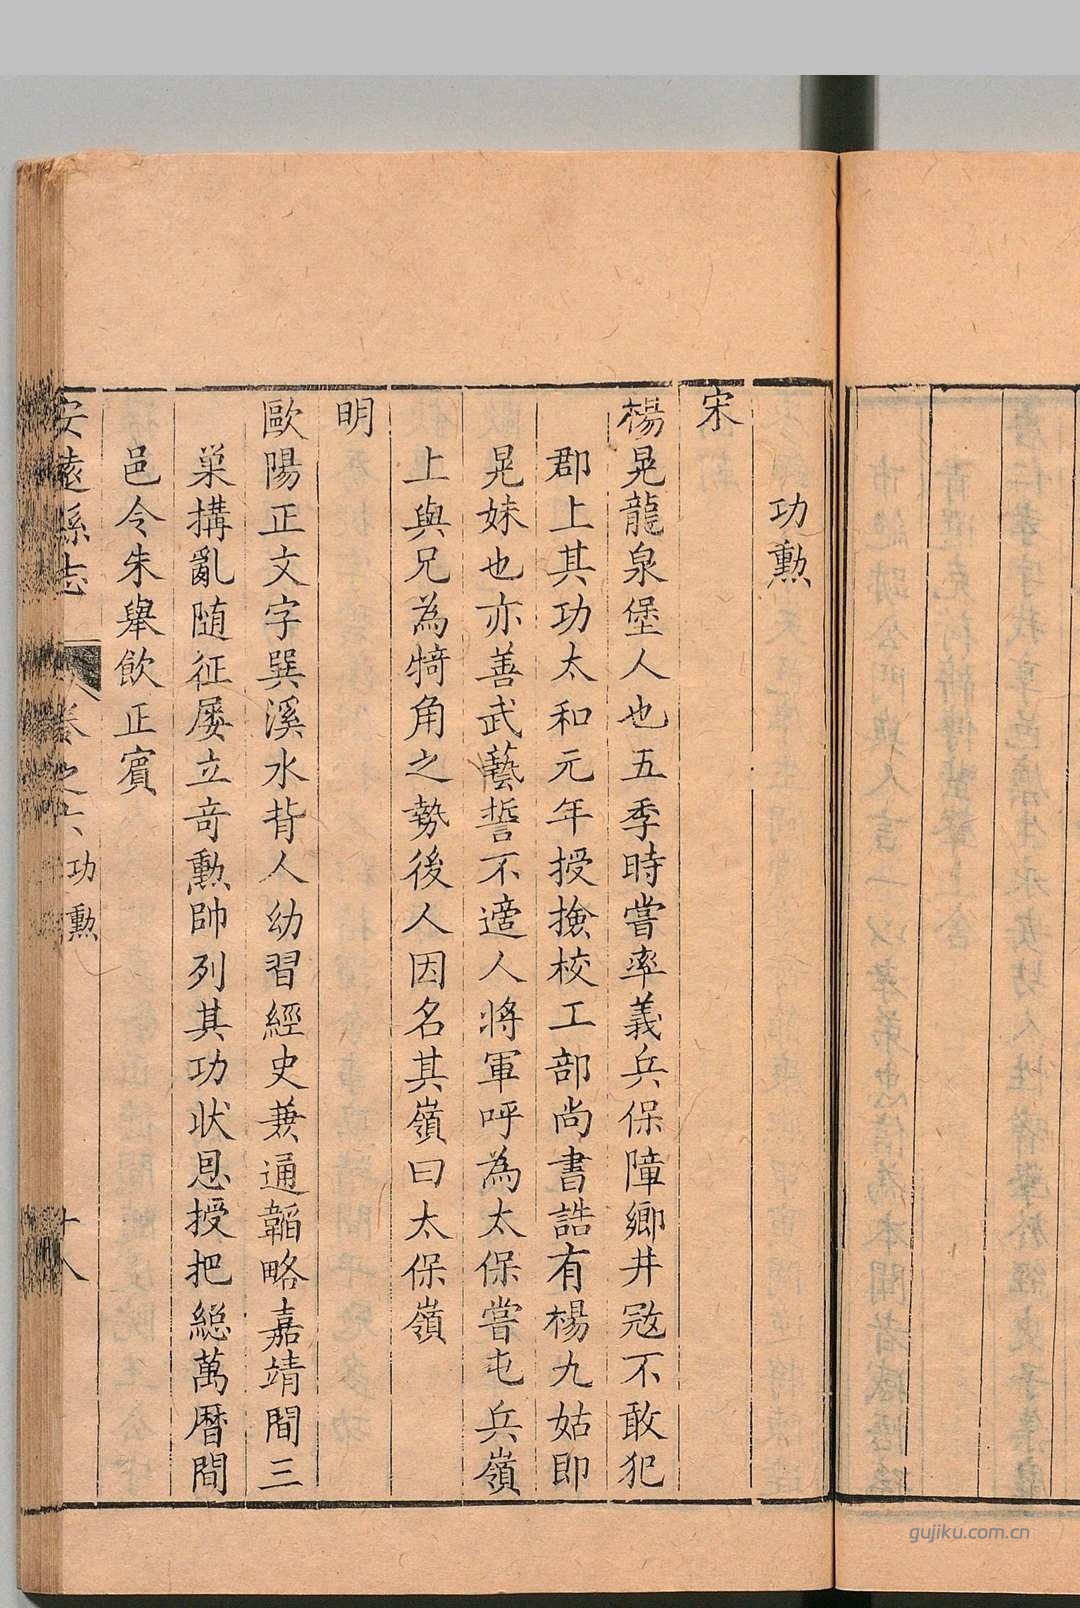 功勳
宋
楊晃龍泉堡人也五季時嘗率義兵保障鄉井寇不敢犯
郡上其功太和元年授撿校工部尚書誥有楊九姑即
晃妹也亦善武藝誓不適人將軍呼為太保嘗屯兵嶺
上與兄為犄角之勢後人因名其嶺曰太保嶺
明
歐陽正文字巽溪水背人幼習經史兼通韜略嘉靖間三
巢搆亂随征屡立竒勲帥列其功状恳授把緫萬曆間
邑令朱舉飲正賓
安遠縣志
卷之六
功勲
十八
gujiku.com.cn